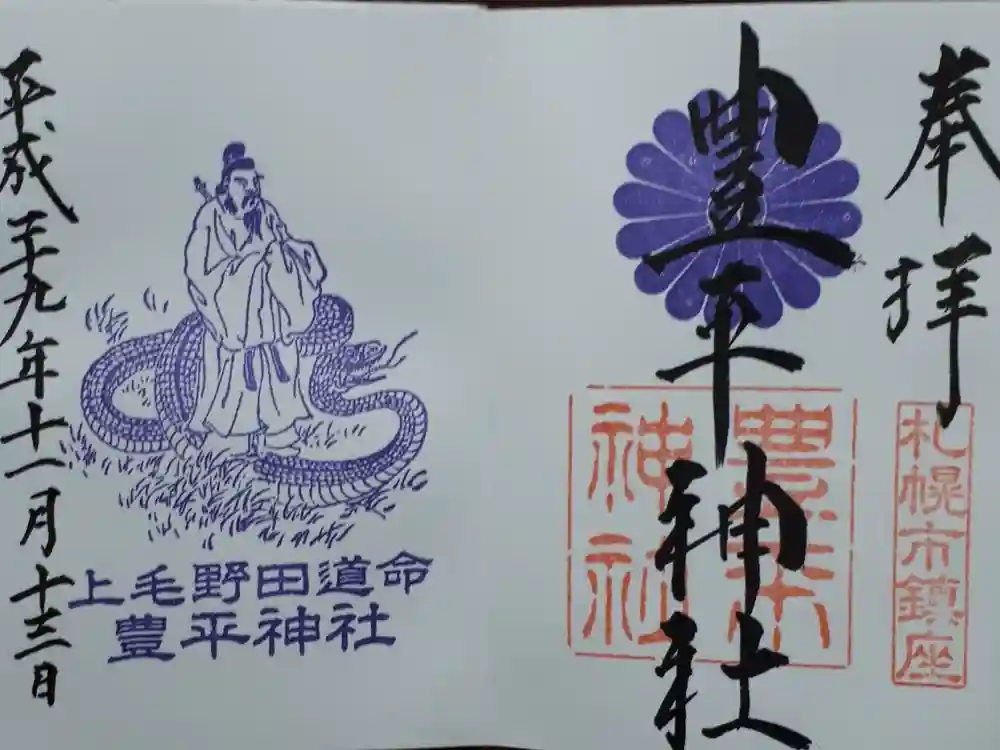 奉拝
札幌市鎮座
豊平神社
豊平神社
上毛野田道命
豊平神社
平成二十九年十一月十三日